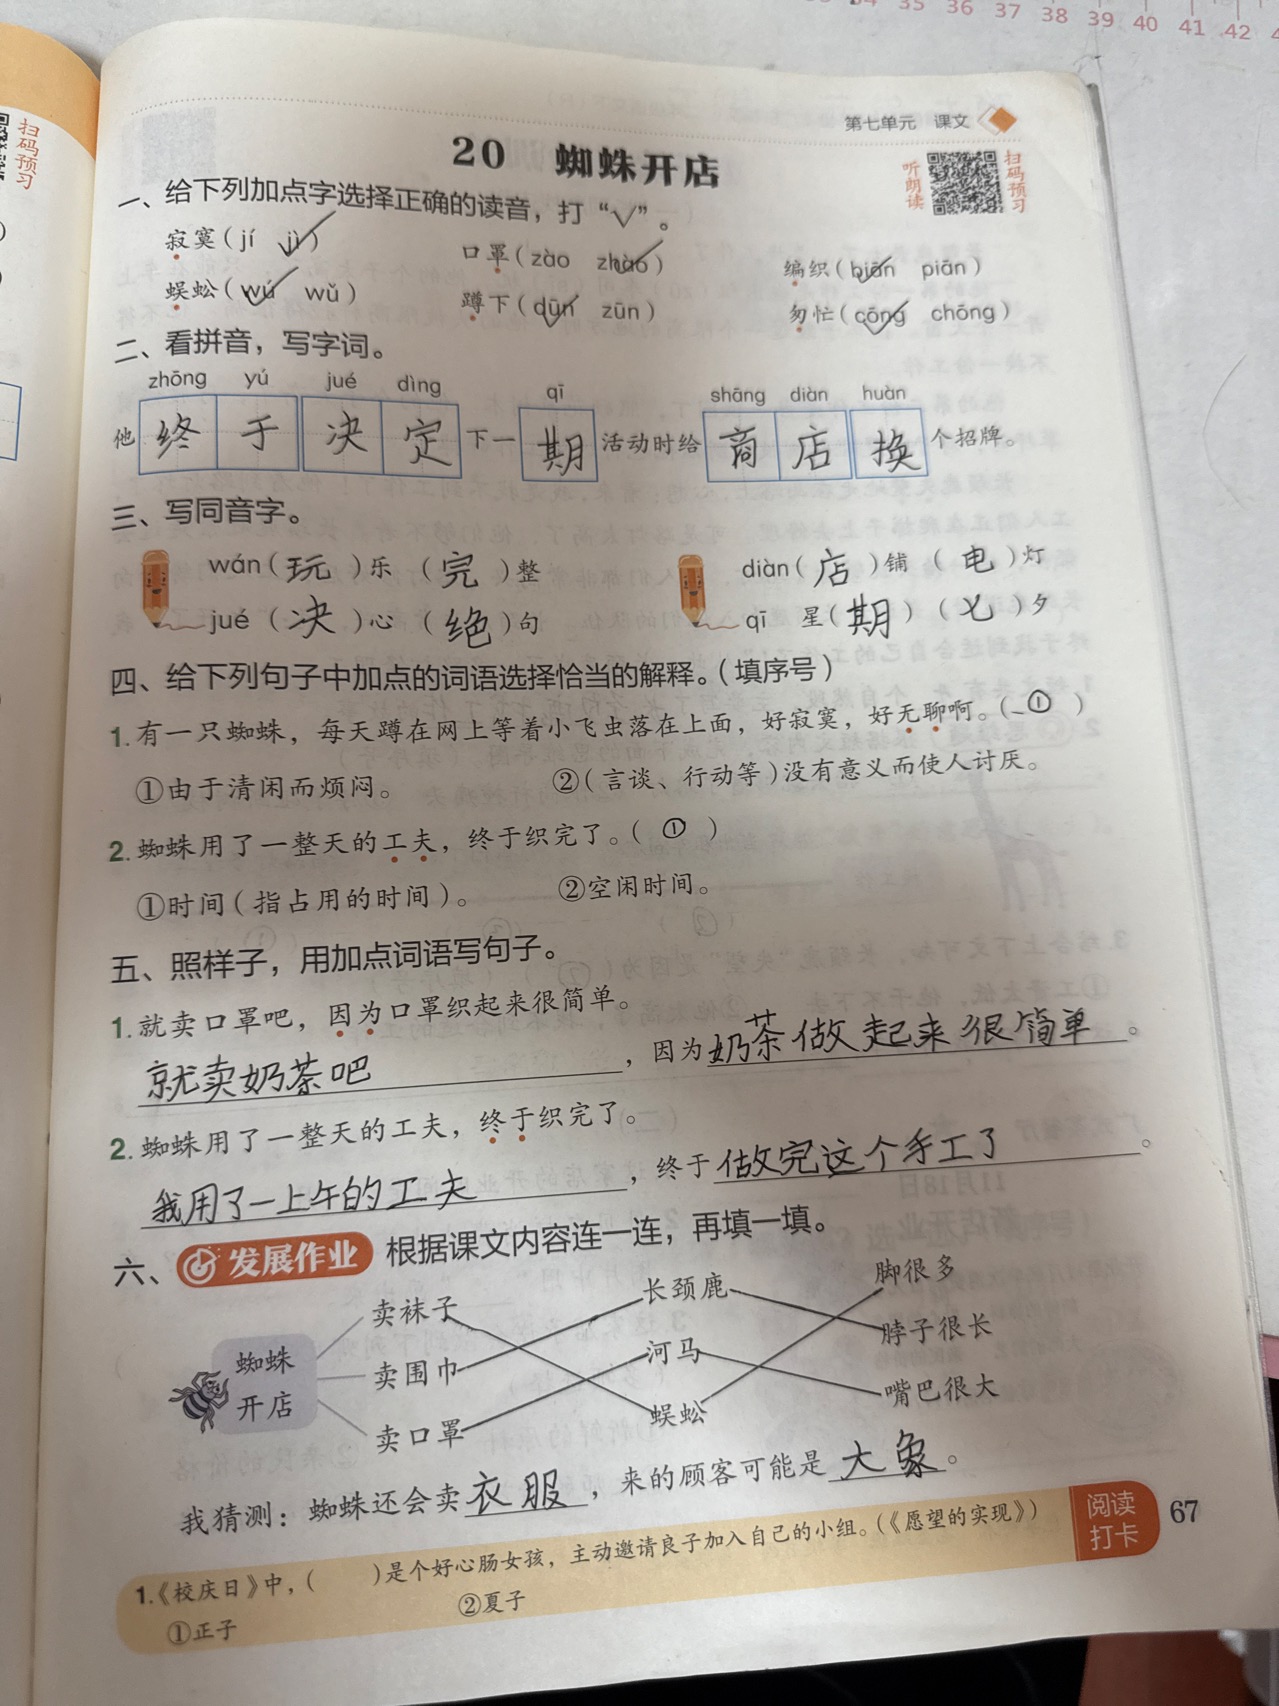 33 34 35 36 37 38 39 40 41 42
扫码预习
第七单元 课文
20 蜘蛛开店
听朗读
扫码预习
一、给下列加点字选择正确的读音，打“√”。
寂寞（jí jì√） 口罩（zào zhào√） 编织（biān√ piān）
蜈蚣（wú√ wǔ） 蹲下（dūn√ zūn） 匆忙（cōng√ chōng）
二、看拼音，写字词。
zhōng yú jué dìng qī shāng diàn huàn
他 终于 决定 下一 期 活动时给 商店 换 个招牌。
三、写同音字。
wán（玩）乐 （完）整 diàn（店）铺 （电）灯
jué（决）心 （绝）句 qī 星（期） （七）夕
四、给下列句子中加点的词语选择恰当的解释。（填序号）
1.有一只蜘蛛，每天蹲在网上等着小飞虫落在上面，好寂寞，好无聊啊。（①）
①由于清闲而烦闷。 ②（言谈、行动等）没有意义而使人讨厌。
2.蜘蛛用了一整天的工夫，终于织完了。（①）
①时间（指占用的时间）。 ②空闲时间。
五、照样子，用加点词语写句子。
1.就卖口罩吧，因为口罩织起来很简单。
就卖奶茶吧，因为奶茶做起来很简单。
2.蜘蛛用了一整天的工夫，终于织完了。
我用了一上午的工夫，终于做完这个手工了。
六、发展作业 根据课文内容连一连，再填一填。
卖袜子 长颈鹿 脚很多
蜘蛛开店 卖围巾 河马 脖子很长
卖口罩 蜈蚣 嘴巴很大
我猜测：蜘蛛还会卖衣服，来的顾客可能是大象。
1.《校庆日》中，（ ）是个好心肠女孩，主动邀请良子加入自己的小组。（《愿望的实现》）
①正子 ②夏子
阅读打卡
67